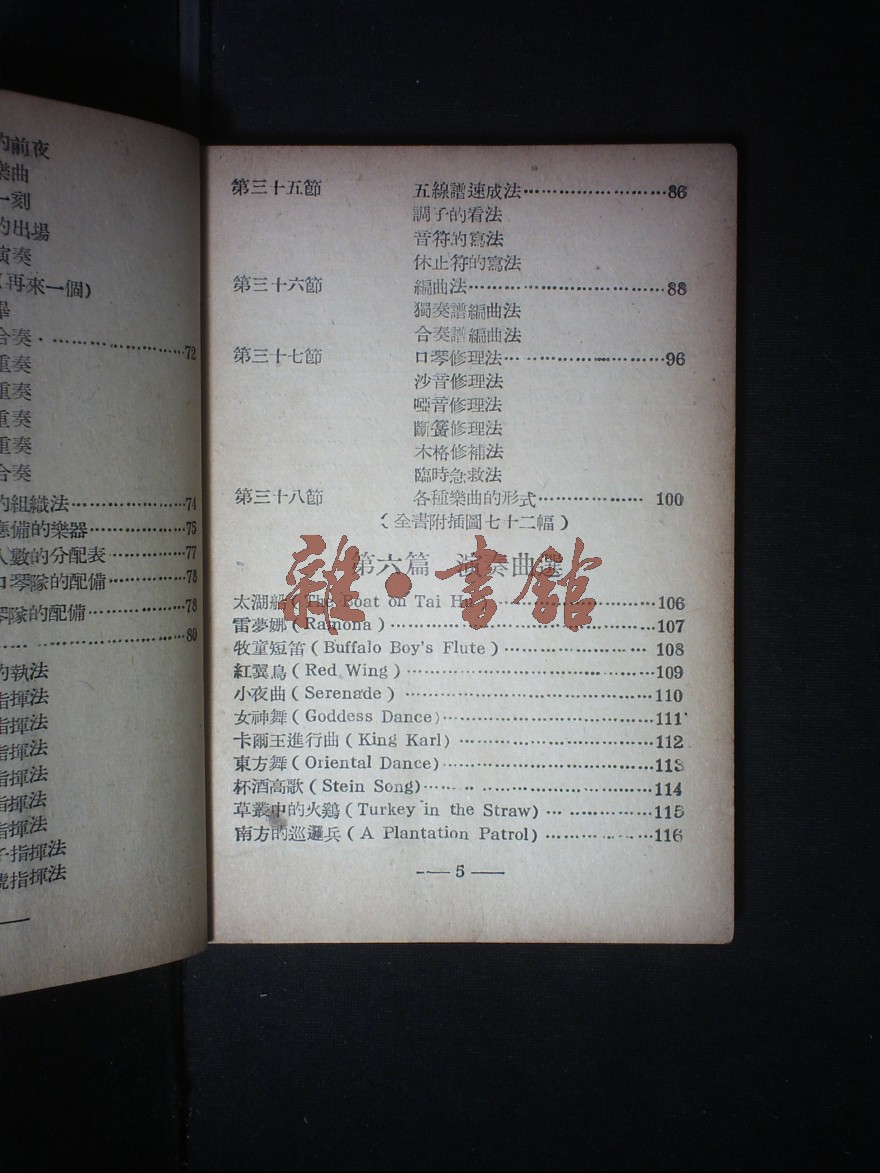 的前夜
樂曲
一刻
的出場
演奏
(再來一個)
畢
合奏…………………72
重奏
重奏
重奏
重奏
合奏
的組織法……………74
應備的樂器…………75
人數的分配表………77
口琴隊的配備………78
琴隊的配備…………78
…………………80
的執法
指揮法
指揮法
指揮法
指揮法
指揮法
指揮法
子指揮法
號指揮法
第三十五節 五線譜速成法……………………86
調子的看法
音符的寫法
休止符的寫法
第三十六節 編曲法……………………88
獨奏譜編曲法
合奏譜編曲法
第三十七節 口琴修理法……………………96
沙音修理法
啞音修理法
斷簧修理法
木格修補法
臨時急救法
第三十八節 各種樂曲的形式……………… 100
(全書附插圖七十二幅)
第六篇 演奏曲選
雜·書館
太湖船(The Boat on Tai Hu)……………………106
雷夢娜(Ramona)……………………107
牧童短笛(Buffalo Boy's Flute)…………………… 108
紅翼鳥(Red Wing)……………………109
小夜曲(Serenade)……………………110
女神舞(Goddess Dance)……………………111
卡爾王進行曲(King Karl)……………………112
東方舞(Oriental Dance)……………………113
杯酒高歌(Stein Song)……………………114
草叢中的火鷄(Turkey in the Straw)………………115
南方的巡邏兵(A Plantation Patrol)………………116
—— 5 ——